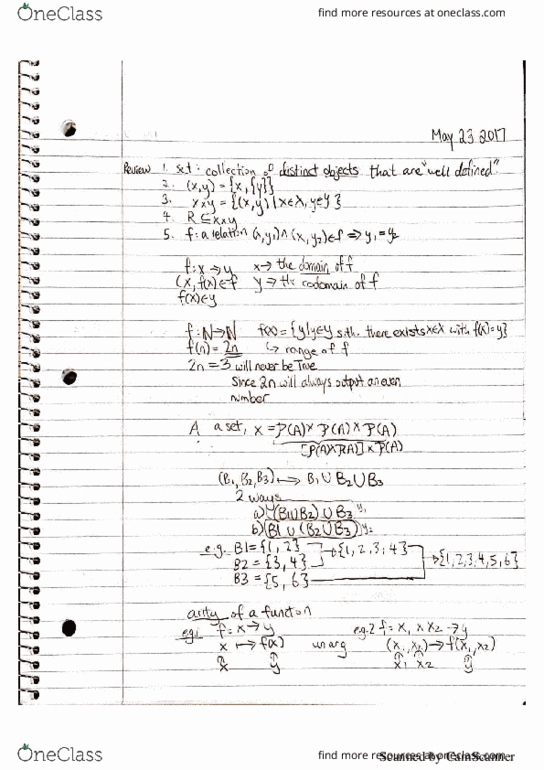 OneClass find more resources at oneclass.com
May 23 2017
Review 1. set: collection of distinct objects that are "well defined"
2. (x,y) = {x, {y}}
3. x×y = {(x,y) | x∈X, y∈Y}
4. R ⊆ x×y
5. f: a relation (x,y₁)∧(x,y₂)∈f ⇒ y₁=y₂
f: x → y x → the domain of f
(x, f(x)∈f y → the codomain of f
f(x)∈y
f: N→N f(x) = {y|y∈y s.th. there exists x∈x with f(x)=y}
f(n) = 2n ↳ range of f
2n = 3 will never be True
Since 2n will always output an even
number
A a set, x = P(A) × P(A) × P(A)
[P(A)×P(A)] × P(A)
(B₁, B₂, B₃) ↦ B₁ ∪ B₂ ∪ B₃
2 ways
a) (B₁∪B₂) ∪ B₃ y₁
b) B₁ ∪ (B₂∪B₃) y₂
e.g. B1 = {1, 2} → {1, 2, 3, 4}
B2 = {3, 4} → {1,2,3,4,5,6}
B3 = {5, 6}
arity of a function
eg.1 f: x → y eg.2 f: x₁ × x₂ → y
x ↦ f(x) unary (x₁, x₂) → f(x₁, x₂)
x y x₁ x₂ y
OneClass find more resources at oneclass.com
Scanned by CamScanner